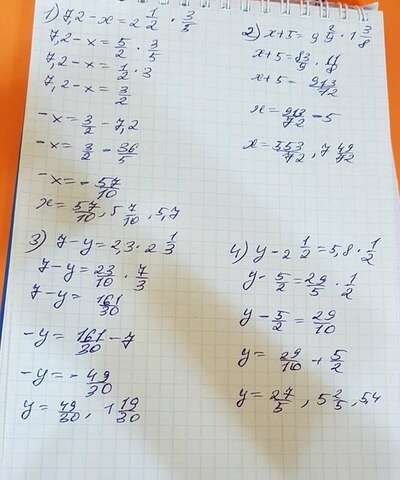 1) 7,2 - x = 2 1/2 · 3/5
7,2 - x = 5/2 · 3/5
7,2 - x = 1/2 · 3
7,2 - x = 3/2
- x = 3/2 - 7,2
- x = 3/2 - 36/5
- x = - 57/10
x = 57/10, 5 7/10, 5,7
2) x + 5 = 9 2/9 · 1 3/8
x + 5 = 83/9 · 11/8
x + 5 = 913/72
x = 913/72 - 5
x = 553/72, 7 49/72
3) 7 - y = 2,3 · 2 1/3
7 - y = 23/10 · 7/3
7 - y = 161/30
- y = 161/30 - 7
- y = - 49/30
y = 49/30, 1 19/30
4) y - 2 1/2 = 5,8 · 1/2
y - 5/2 = 29/5 · 1/2
y - 5/2 = 29/10
y = 29/10 + 5/2
y = 27/5, 5 2/5, 5,4